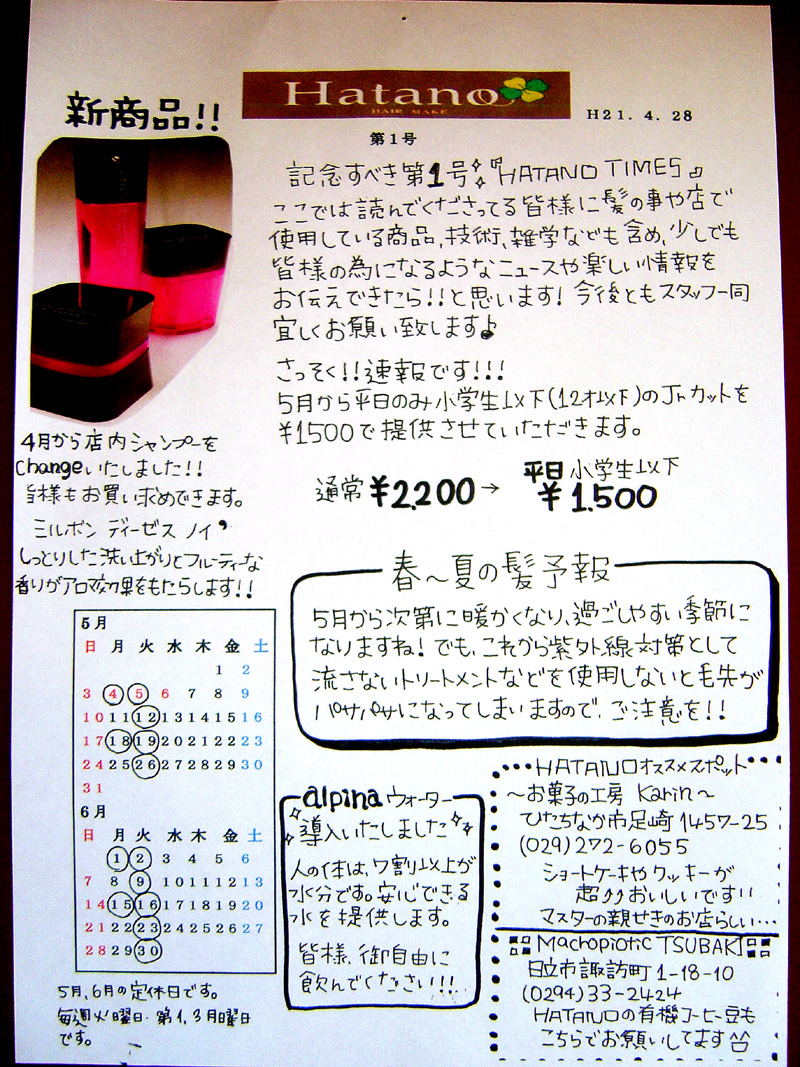 新商品!!
Hatano
HAIR MAKE
H21. 4. 28
第1号
記念すべき第1号『HATANO TIMES』
ここでは読んでくださってる皆様に髪の事や店で
使用している商品,技術,雑学なども含め,少しでも
皆様の為になるようなニュースや楽しい情報を
お伝えできたら!!と思います! 今後ともスタッフ一同
宜しくお願い致します♪
さっそく!!速報です!!!
5月から平日のみ小学生以下(12才以下)のJrカットを
¥1500で提供させていただきます。
通常 ¥2,200→ 平日 小学生以下
¥1,500
4月から店内シャンプーを
changeいたしました!!
皆様もお買い求めできます。
ミルボン ディーゼス ノイ
しっとりした洗い上がりとフルーティーな
香りがアロマ効果をもたらします!!
春~夏の髪予報
5月から次第に暖かくなり、過ごしやすい季節に
なりますね! でも、これから紫外線対策として
流さないトリートメントなどを使用しないと毛先が
パサパサになってしまいますので、ご注意を!!
5月
日 月 火 水 木 金 土
1 2
3 4 5 6 7 8 9
10 11 12 13 14 15 16
17 18 19 20 21 22 23
24 25 26 27 28 29 30
31
6月
日 月 火 水 木 金 土
1 2 3 4 5 6
7 8 9 10 11 12 13
14 15 16 17 18 19 20
21 22 23 24 25 26 27
28 29 30
5月,6月の定休日です。
毎週火曜日・第1,3月曜日
です。
alpinaウォーター
導入いたしました
人の体は、7割以上が
水分です。安心できる
水を提供します。
皆様、御自由に
飲んでください!!
HATANOオススメスポット
~お菓子の工房 Karin~
ひたちなか市足崎1457-25
(029)272-6055
ショートケーキやクッキーが
超↑↑おいしいです!!
マスターの親せきのお店らしい…
Machopiotic TSUBAKI
日立市諏訪町1-18-10
(0294)33-2424
HATANOの有機コーヒー豆も
こちらでお願いしてます^^